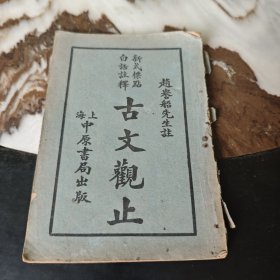 趙眷船先生註
新式標點
白話註釋
古文觀止
上海
中原書局出版